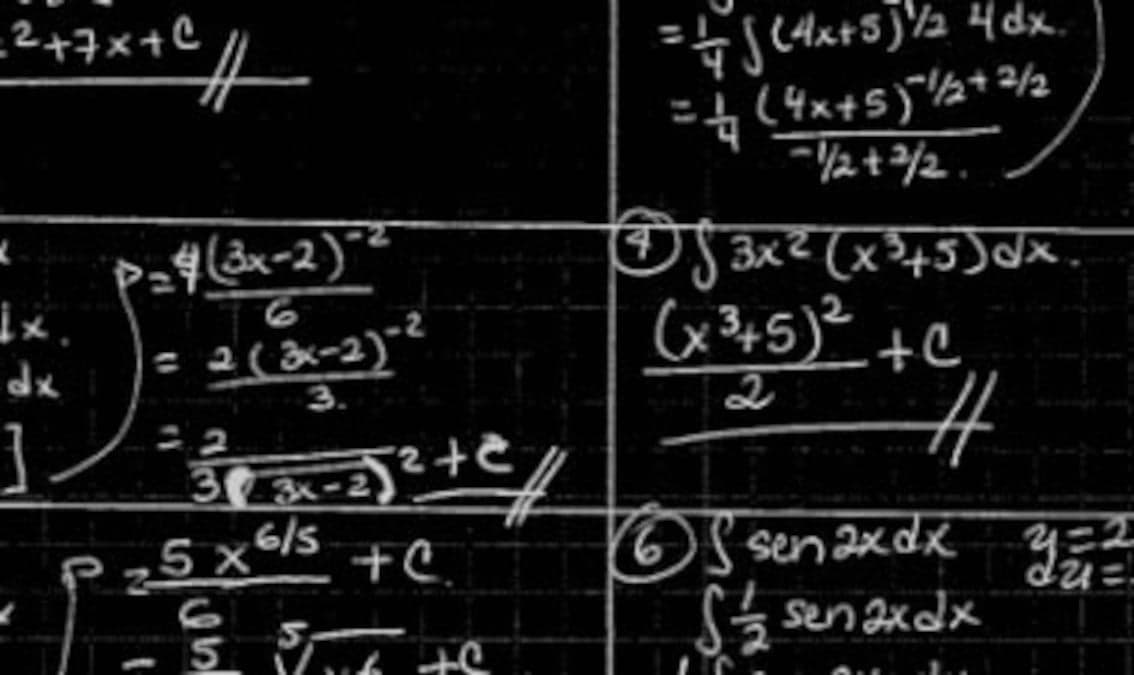 ²+7x+C
= 1/4 ∫(4x+5)^-1/2 4dx.
= 1/4 (4x+5)^-1/2+2/2
-1/2+2/2.
= 4(3x-2)^-2
6
= 2(3x-2)^-2
3.
= 2
3(3x-2)² +C
dx.
dx
]
④ ∫3x²(x³+5)dx.
(x³+5)² +C
2
= 5x^6/5 +C
6
5
5√ +C
⑥ ∫ sen 2x dx
∫ 1/2 sen 2x dx